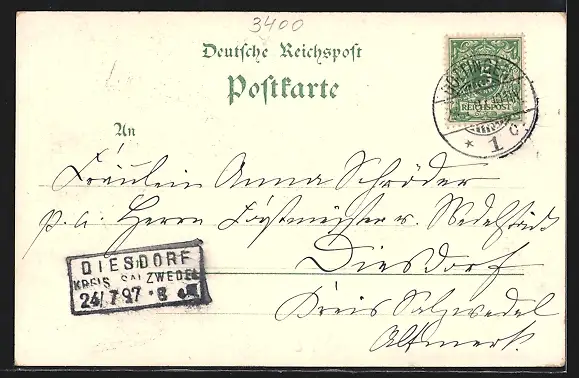 3400
Deutsche Reichspost
Postkarte
An
REICHSPOST
* 1 c.
Fräulein Anna Schröder
p. a. Herrn Forstmeister v. Wedelstädt
Diesdorf
DIESDORF
KREIS SALZWEDEL
24/7 97
Kreis Salzwedel
Altmark.